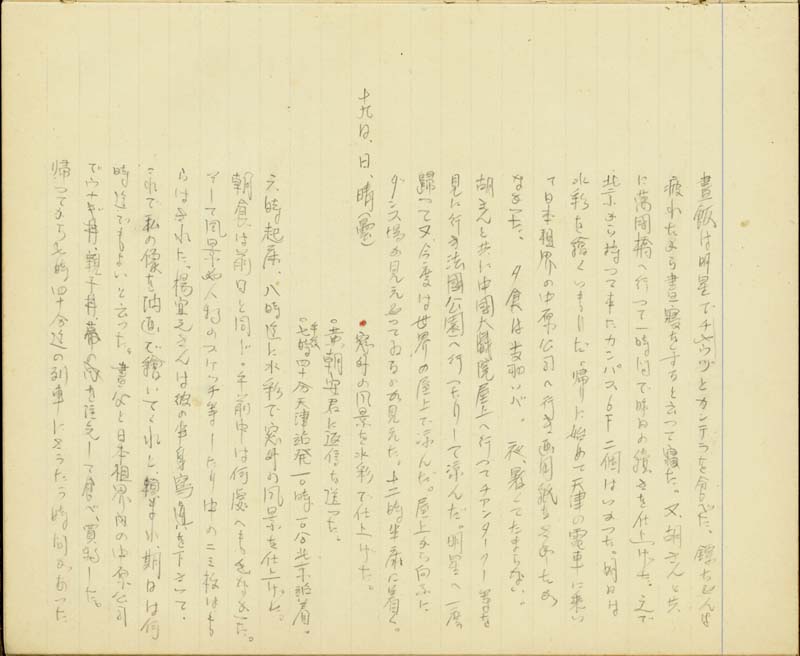 晝飯は明星でチャウソとカンテラを食べた、錦ちやんは
疲れたから晝寝をすると云つて寝た。又、胡さんと共
に萬國橋へ行つて一時間で昨日の續きを仕上げた。之で
北京から持つて来たカンバス6F二個はいつた。明日は
水彩を繪くつもりだ。帰りに始めて天津の電車に乘つ
て日本租界の中原公司へ行き画用紙を
なかつた。夕食は支那パン。夜、暑くてたまらない。
胡さんと共に中國大戲院屋上へ行つてチアンダークー等を
見に行き法國公園へ行つたりして涼んだ。明星へ一度
歸つて又今度は世界の屋上で涼んだ。屋上から向ふに
ダンス場が見え、やつてゐるのが見えた。十二時半床に着く。
十九日、日、晴(曇)
・窓外の風景を水彩で仕上げた。
・黄朝安君に返信を送った。
・午後七時四十分天津站発一〇時一〇分北京站着。
六時起床、八時迄に水彩で窓外の風景を仕上げた。
朝食は前日と同じ。午前中は何處へも出なかつた。
そして風景や人物のスケッチ等したり中の二三枚はも
らはされた。楊宜元さんは彼の半身寫真を下さつて、
これで私の像を油画で繪いてくれと頼まれ、期日は何
時迄でもよいと云つた。晝父と日本租界内の中原公司
でウナギ丼、親子丼、を注文して食べ、買物した。
帰つてから七時四十分迄の列車に時間があつた。